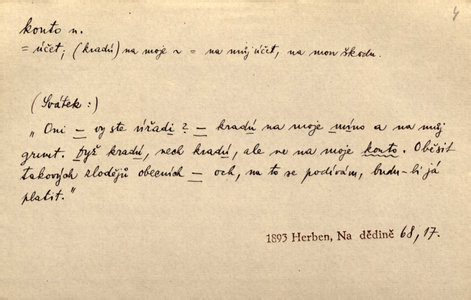 konto n.
= účet; (kradú) na moje ~ = na můj účet, na mou škodu.
(Svátek:)
„Oni — vy ste úřadi? — kradú na moje méno a na můj
grunt. Dyž kradú, nech kradú, ale ne na moje konto. Oběsit
takových zlodějů obecních — och, na to se podívám, budu-li já
platit."
1893 Herben, Na dědině 68, 17.